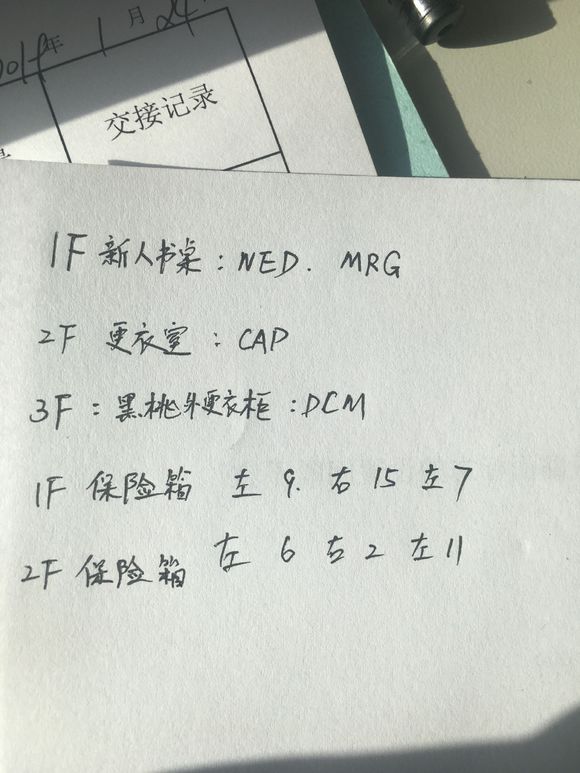 年 1 月 24
交接记录
1F 新人书桌：NED. MRG
2F 更衣室：CAP
3F：黑桃外更衣柜：DCM
1F 保险箱 左 9. 右 15 左 7
2F 保险箱 左 6 右 2 左 11